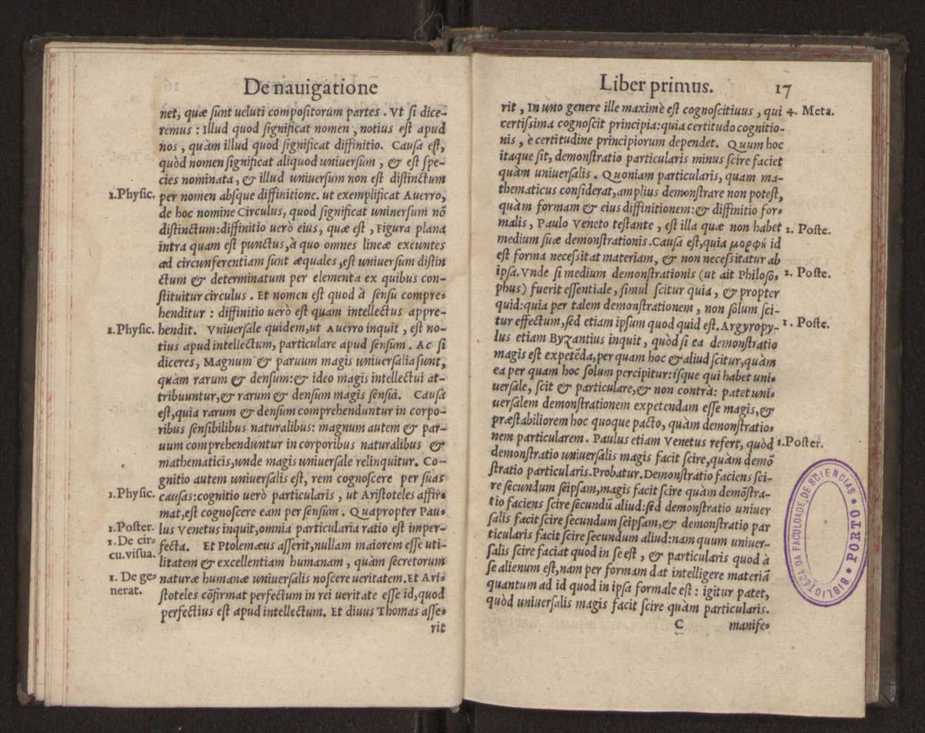 De nauigatione
net, quæ sunt veluti compositorum partes. Vt si dice-
remus: Illud quod significat nomen, notius est apud
nos, quàm illud quod significat diffinitio. Causa est,
quòd nomen significat aliquod vniuersum, & est spe-
cies nominata, & illud vniuersum non est distinctum
1.Physic. per nomen absque diffinitione. ut exemplificat Auerro,
de hoc nomine Circulus, quod significat uninersum nõ
distinctum: diffinitio verò eius, quæ est, Figura plana
intra quam est punctus, à quo omnes lineæ exeuntes
ad circunferentiam sunt æquales, est uniuersum distin
ctum & determinatum per elementa ex quibus con-
stituitur circulus. Et nomen est quod à sensu compre-
henditur: diffinitio uerò est quam intellectus appre-
1.Physic. hendit. Vniuersale quidem, ut Auerro inquit, est no-
tius apud intellectum, particulare apud sensum. Ac si
diceres, Magnum & paruum magis uniuersalia sunt,
quàm rarum & densum: & ideo magis intellectui at-
tribuuntur, & rarum & densum magis sensui. Causa
est, quia rarum & densum comprehenduntur in corpo-
ribus sensibilibus naturalibus: magnum autem & par-
uum comprehenduntur in corporibus naturalibus &
mathematicis, unde magis uniuersale relinquitur. Co-
gnitio autem uniuersalis est, rem cognoscere per suas
1.Physic. causas: cognitio uerò particularis, ut Aristoteles affir-
mat, est cognoscere eam per sensum. Quapropter Pau-
1.Poster. lus Venetus inquit, omnia particularia ratio est imper-
1. De cir- fecta. Et Ptolemæus asserit, nullam maiorem esse uti-
cu.visua. litatem & excellentiam humanam, quàm secretorum
1. De ge- naturæ humanæ uniuersalis noscere ueritatem. Et Ari-
nerat. stoteles cõfirmat perfectum in rei ueritate esse id, quod
perfectius est apud intellectum. Et diuus Thomas asse-
rit
Liber primus. 17
rit, In uno genere ille maximè est cognoscitiuus, qui 4. Meta.
certissima cognoscit principia: quia certitudo cognitio-
nis, è certitudine principiorum dependet. Quum hoc
itaque sit, demonstratio particularis minus scire faciet
quàm uniuersalis. Quoniam particularis, quam ma-
thematicus considerat, amplius demonstrare non potest,
quàm formam & eius diffinitionem: & diffinitio for-
malis, Paulo Veneto testante, est illa quæ non habet 1. Poste.
medium suæ demonstrationis. Causa est, quia μορφὴ id
est forma necessitat materiam, & non necessitatur ab
ipsa. Vnde si medium demonstrationis (ut ait Philoso- 2. Poste.
phus) fuerit essentiale, simul scitur quia, & propter
quid: quia per talem demonstrationem, non solum sci-
tur effectum, sed etiam ipsum quod quid est. Argyropy- 1. Poste.
lus etiam Byzantius inquit, quòd si ea demonstratio
magis est expetẽda, per quam hoc & aliud scitur, quàm
ea per quam hoc solum percipitur: isque qui habet uni-
uersale, scit & particulare, & non contrà: patet uni-
uersalem demonstrationem expetendam esse magis, &
præstabiliorem hoc quoque pacto, quàm demonstratio-
nem particularem. Paulus etiam Venetus refert, quòd 1.Poster.
demonstratio uniuersalis magis facit scire, quàm demõ
stratio particularis. Probatur. Demonstratio faciens sci-
re secundum seipsam, magis facit scire quàm demõstra-
tio faciens scire secundũ aliud: sed demonstratio uniuer
salis facit scire secundum seipsam, & demonstratio par
ticularis facit scire secundum aliud: nam quum uniuer-
salis scire faciat quod in se est, & particularis quod à
se alienum est, nam per formam dat intelligere materiã
quantum ad id quod in ipsa formale est: igitur patet,
quòd uniuersalis magis facit scire quàm particularis.
C manife-
BIBLIOTECA DA FACULDADE DE SCIENCIAS • PORTO •